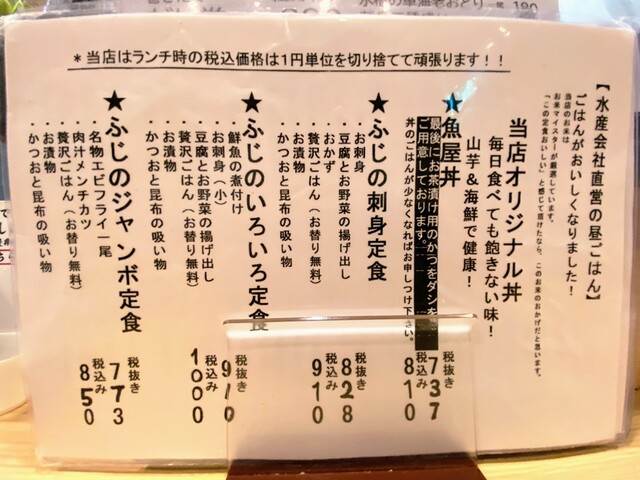 ＊当店はランチ時の税込価格は１円単位を切り捨てて頑張ります！！
【水産会社直営の昼ごはん】
ごはんがおいしくなりました！
当店のお米は
お米マイスターが厳選しています。
「この定食おいしい」と感じて頂けたなら、このお米のおかげだと思います。
当店オリジナル丼
毎日食べても飽きない味！
山芋＆海鮮で健康！
★魚屋丼
税抜き 737
最後にお茶漬け用のかつをダシを
ご用意しております。
税込み 810
丼のごはんが少なくなればお申しつけ下さい。
★ふじの刺身定食
・お刺身
・豆腐とお野菜の揚げ出し
・おかず
・贅沢ごはん（お替り無料）
・お漬物
・かつおと昆布の吸い物
税抜き 828
税込み 910
★ふじのいろいろ定食
・鮮魚の煮付け
・お刺身（小）
・豆腐とお野菜の揚げ出し
・贅沢ごはん（お替り無料）
・お漬物
・かつおと昆布の吸い物
税抜き 910
税込み 1000
★ふじのジャンボ定食
・名物エビフライ一尾
・肉汁メンチカツ
・贅沢ごはん（お替り無料）
・お漬物
・かつおと昆布の吸い物
税抜き 773
税込み 850